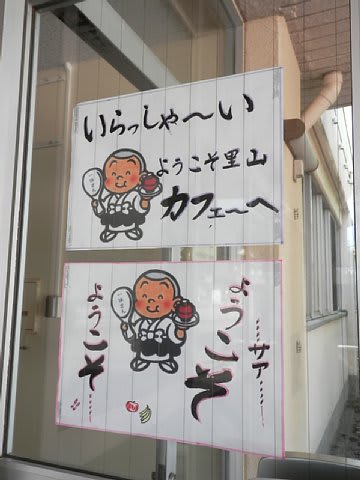 いらっしゃ〜い
ようこそ里山
カフェ〜へ
……サア……
ようこそ
ようこそ……